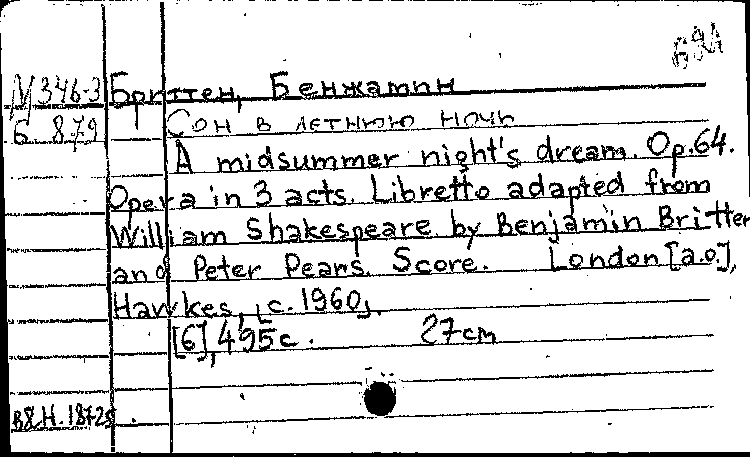 М346-3 Бриттен, Бенжамин
Б 879 Сон в летнюю ночь
A midsummer night's dream. Op.64.
Opera in 3 acts. Libretto adapted from
William Shakespeare by Benjamin Britten
and Peter Pears. Score. London [a.o.],
Hawkes, [c.1960].
[6], 495 c. 27cm
B&H.18728.